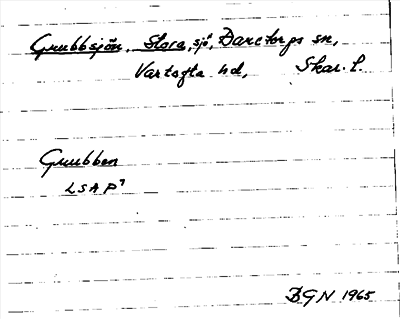 Grubbsjön, Stora, sjö, Daretorps sn,
Vartofta hd, Skar. l.
Grubben
LSAP⁷
BGN 1965